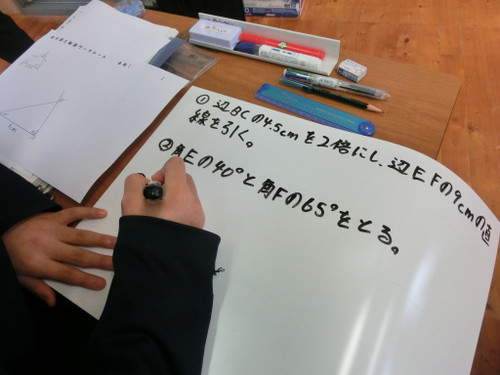 ① 辺BCの4.5cmを2倍にし、辺EFの9cmの直
線を引く。
② 角Eの40°と角Fの65°をとる。